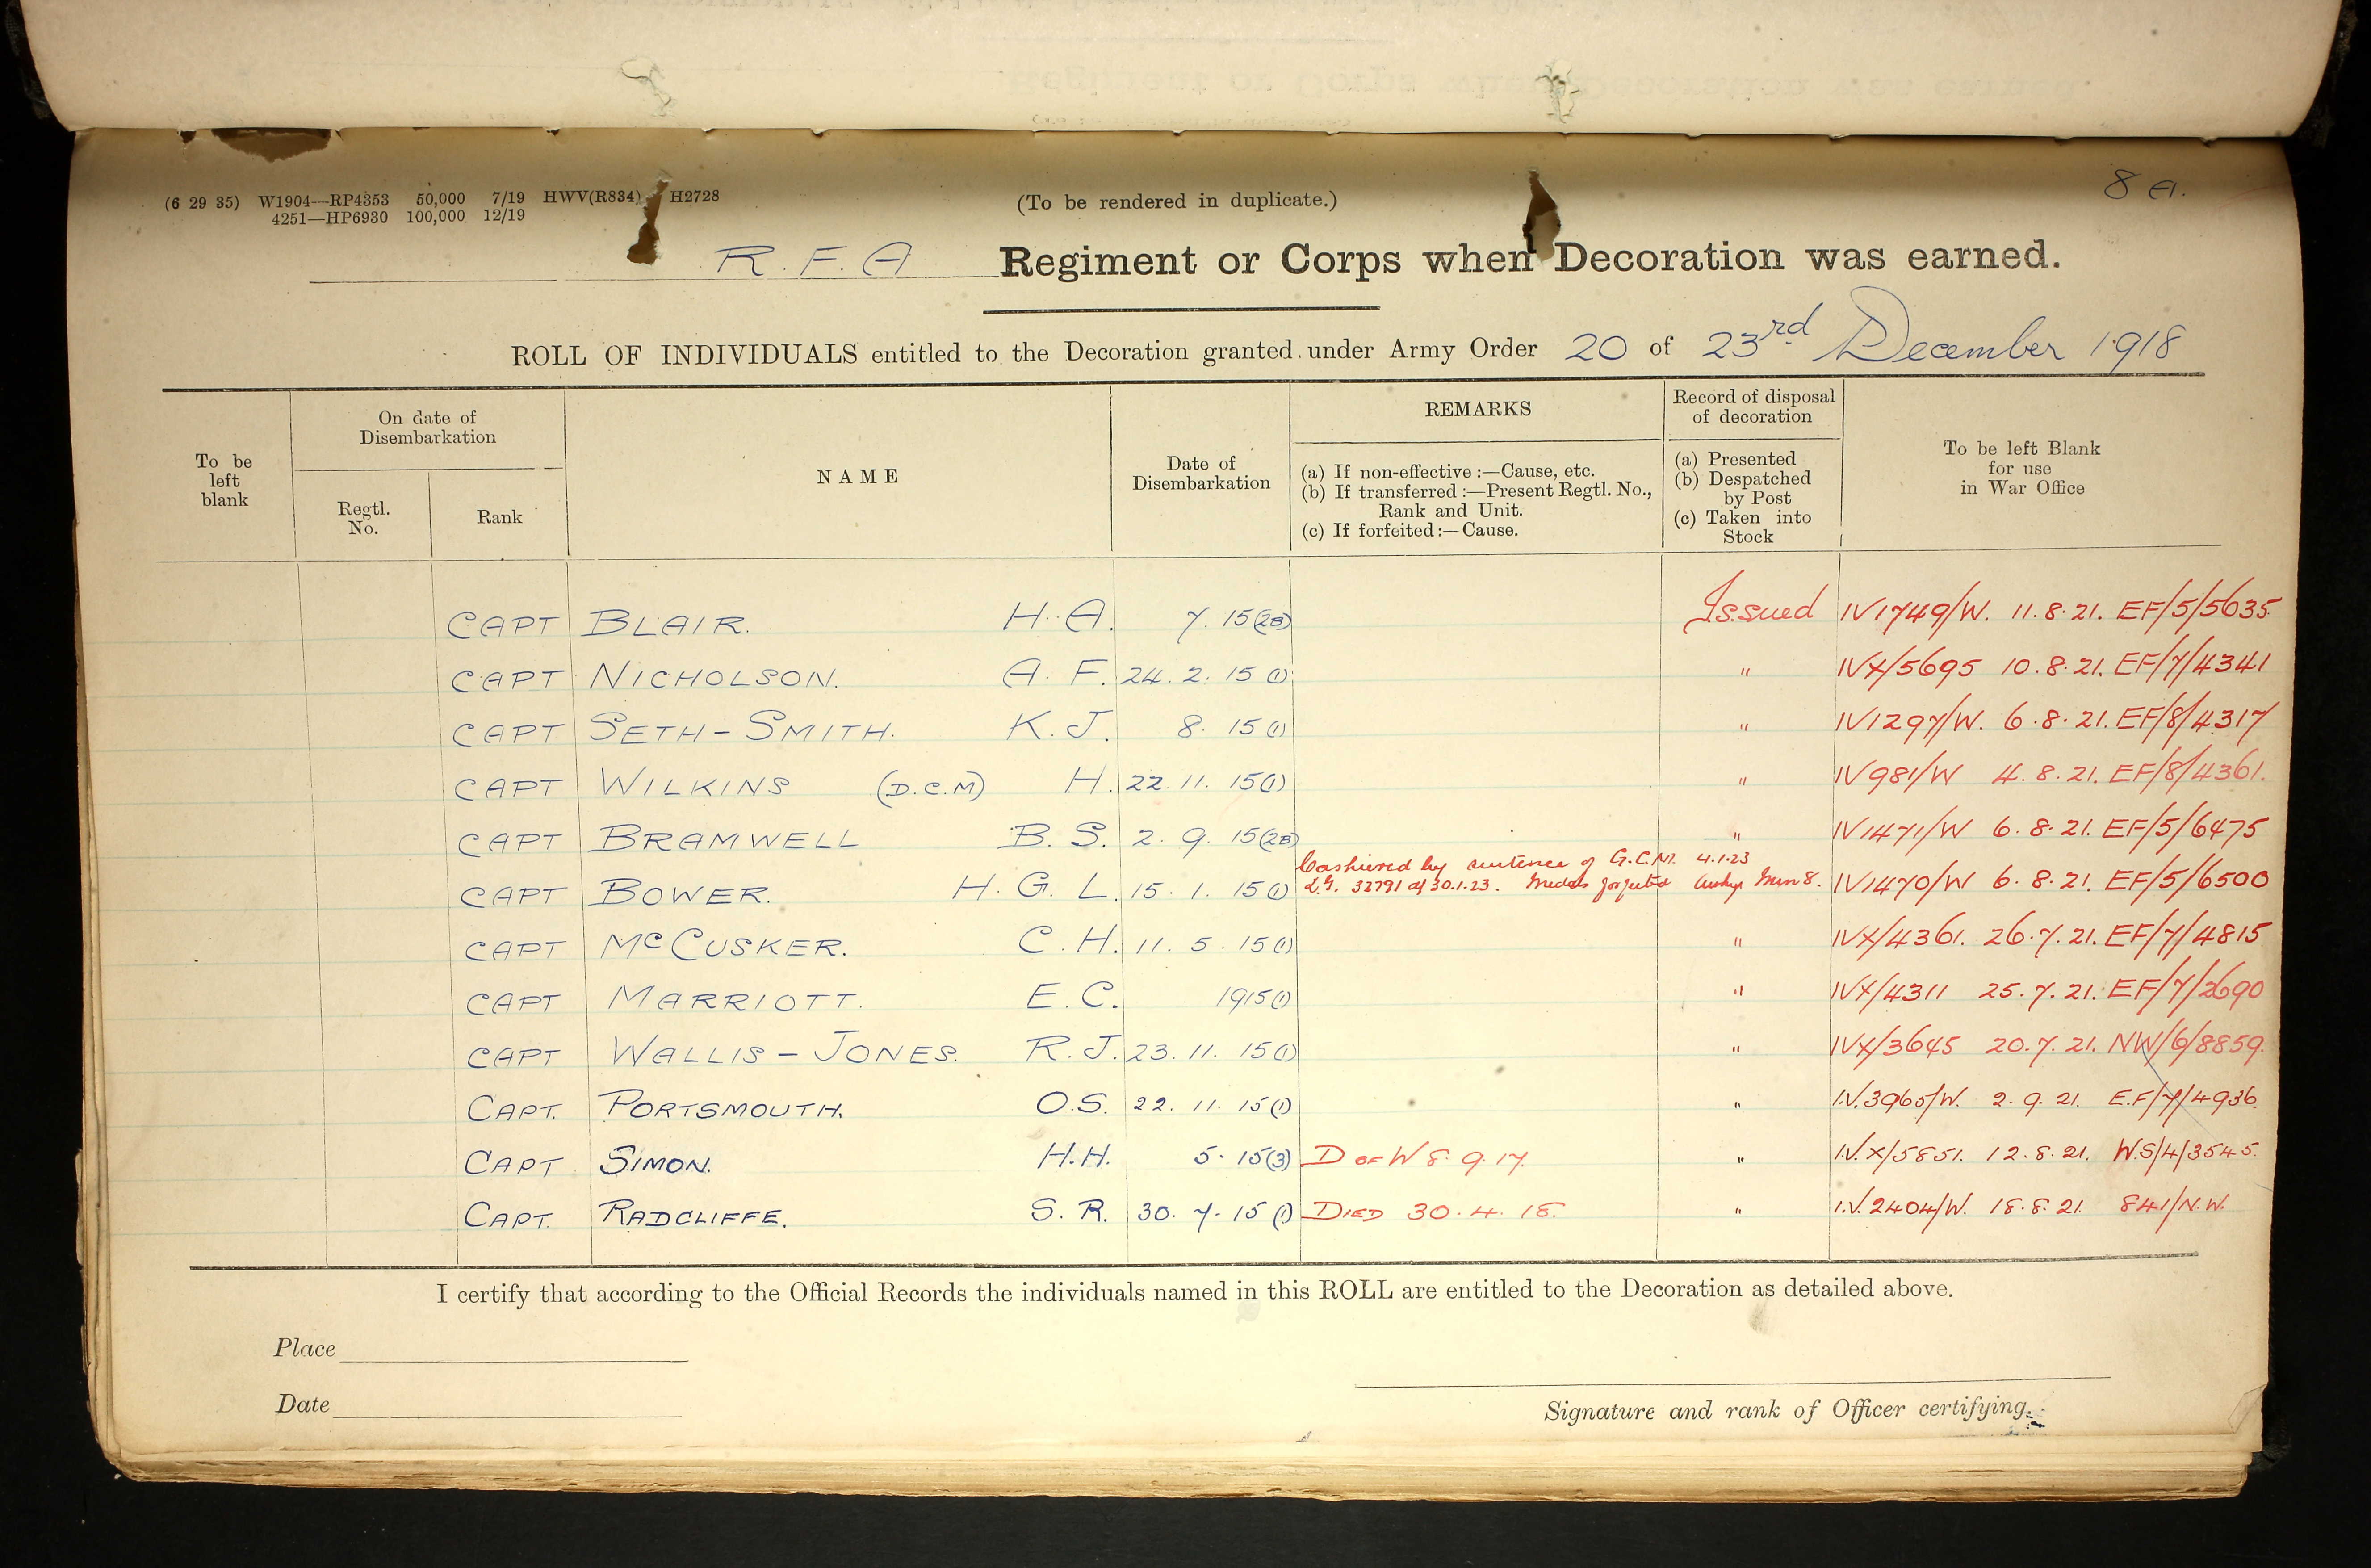 8 A.
(6 29 35) W1904—RP4353 50,000 7/19 HWV(R834) H2728
4251—HP6930 100,000 12/19
(To be rendered in duplicate.)
R. F. A Regiment or Corps when Decoration was earned.
ROLL OF INDIVIDUALS entitled to the Decoration granted under Army Order 20 of 23rd December 1918
To be left blank
On date of Disembarkation
Regtl. No.
Rank
NAME
Date of Disembarkation
REMARKS
(a) If non-effective :—Cause, etc.
(b) If transferred :—Present Regtl. No., Rank and Unit.
(c) If forfeited :—Cause.
Record of disposal of decoration
(a) Presented
(b) Despatched by Post
(c) Taken into Stock
To be left Blank for use in War Office
CAPT BLAIR. H. A. 7. 15 (2B) Issued IV1749/W. 11.8.21. EF/5/5635
CAPT NICHOLSON. A. F. 24. 2. 15 (1) " IVX/5695 10.8.21. EF/7/4341
CAPT SETH-SMITH. K. J. 8. 15 (1) " IV1297/W. 6.8.21. EF/8/4317
CAPT WILKINS (D.C.M) H. 22. 11. 15 (1) " IV981/W 4.8.21. EF/8/4361.
CAPT BRAMWELL B. S. 2. 9. 15 (2B) " IV1471/W 6.8.21. EF/5/6475
Cashiered by sentence of G.C.M. 4.1.23
CAPT BOWER. H. G. L. 15. 1. 15 (1) L.G. 32791 of 30.1.23. Medals forfeited IV1470/W 6.8.21. EF/5/6500
CAPT McCUSKER. C. H. 11. 5. 15 (1) " IVX/4361. 26.7.21. EF/7/4815
CAPT MARRIOTT. E. C. 1915 (1) " IVX/4311 25.7.21. EF/7/2690
CAPT WALLIS-JONES. R. J. 23. 11. 15 (1) " IVX/3645 20.7.21. NW/6/8859.
CAPT. PORTSMOUTH. O.S. 22. 11. 15 (1) " I.V.3965/W. 2.9.21. E.F/7/4936.
CAPT SIMON. H.H. 5. 15 (3) D OF W 8.9.17. " I.V.X/5851. 12.8.21. W.S/4/3545.
CAPT. RADCLIFFE. S. R. 30. 7. 15 (1) DIED 30.4.18. " I.V.2404/W. 18.8.21. 841/N.W.
I certify that according to the Official Records the individuals named in this ROLL are entitled to the Decoration as detailed above.
Place
Date
Signature and rank of Officer certifying.